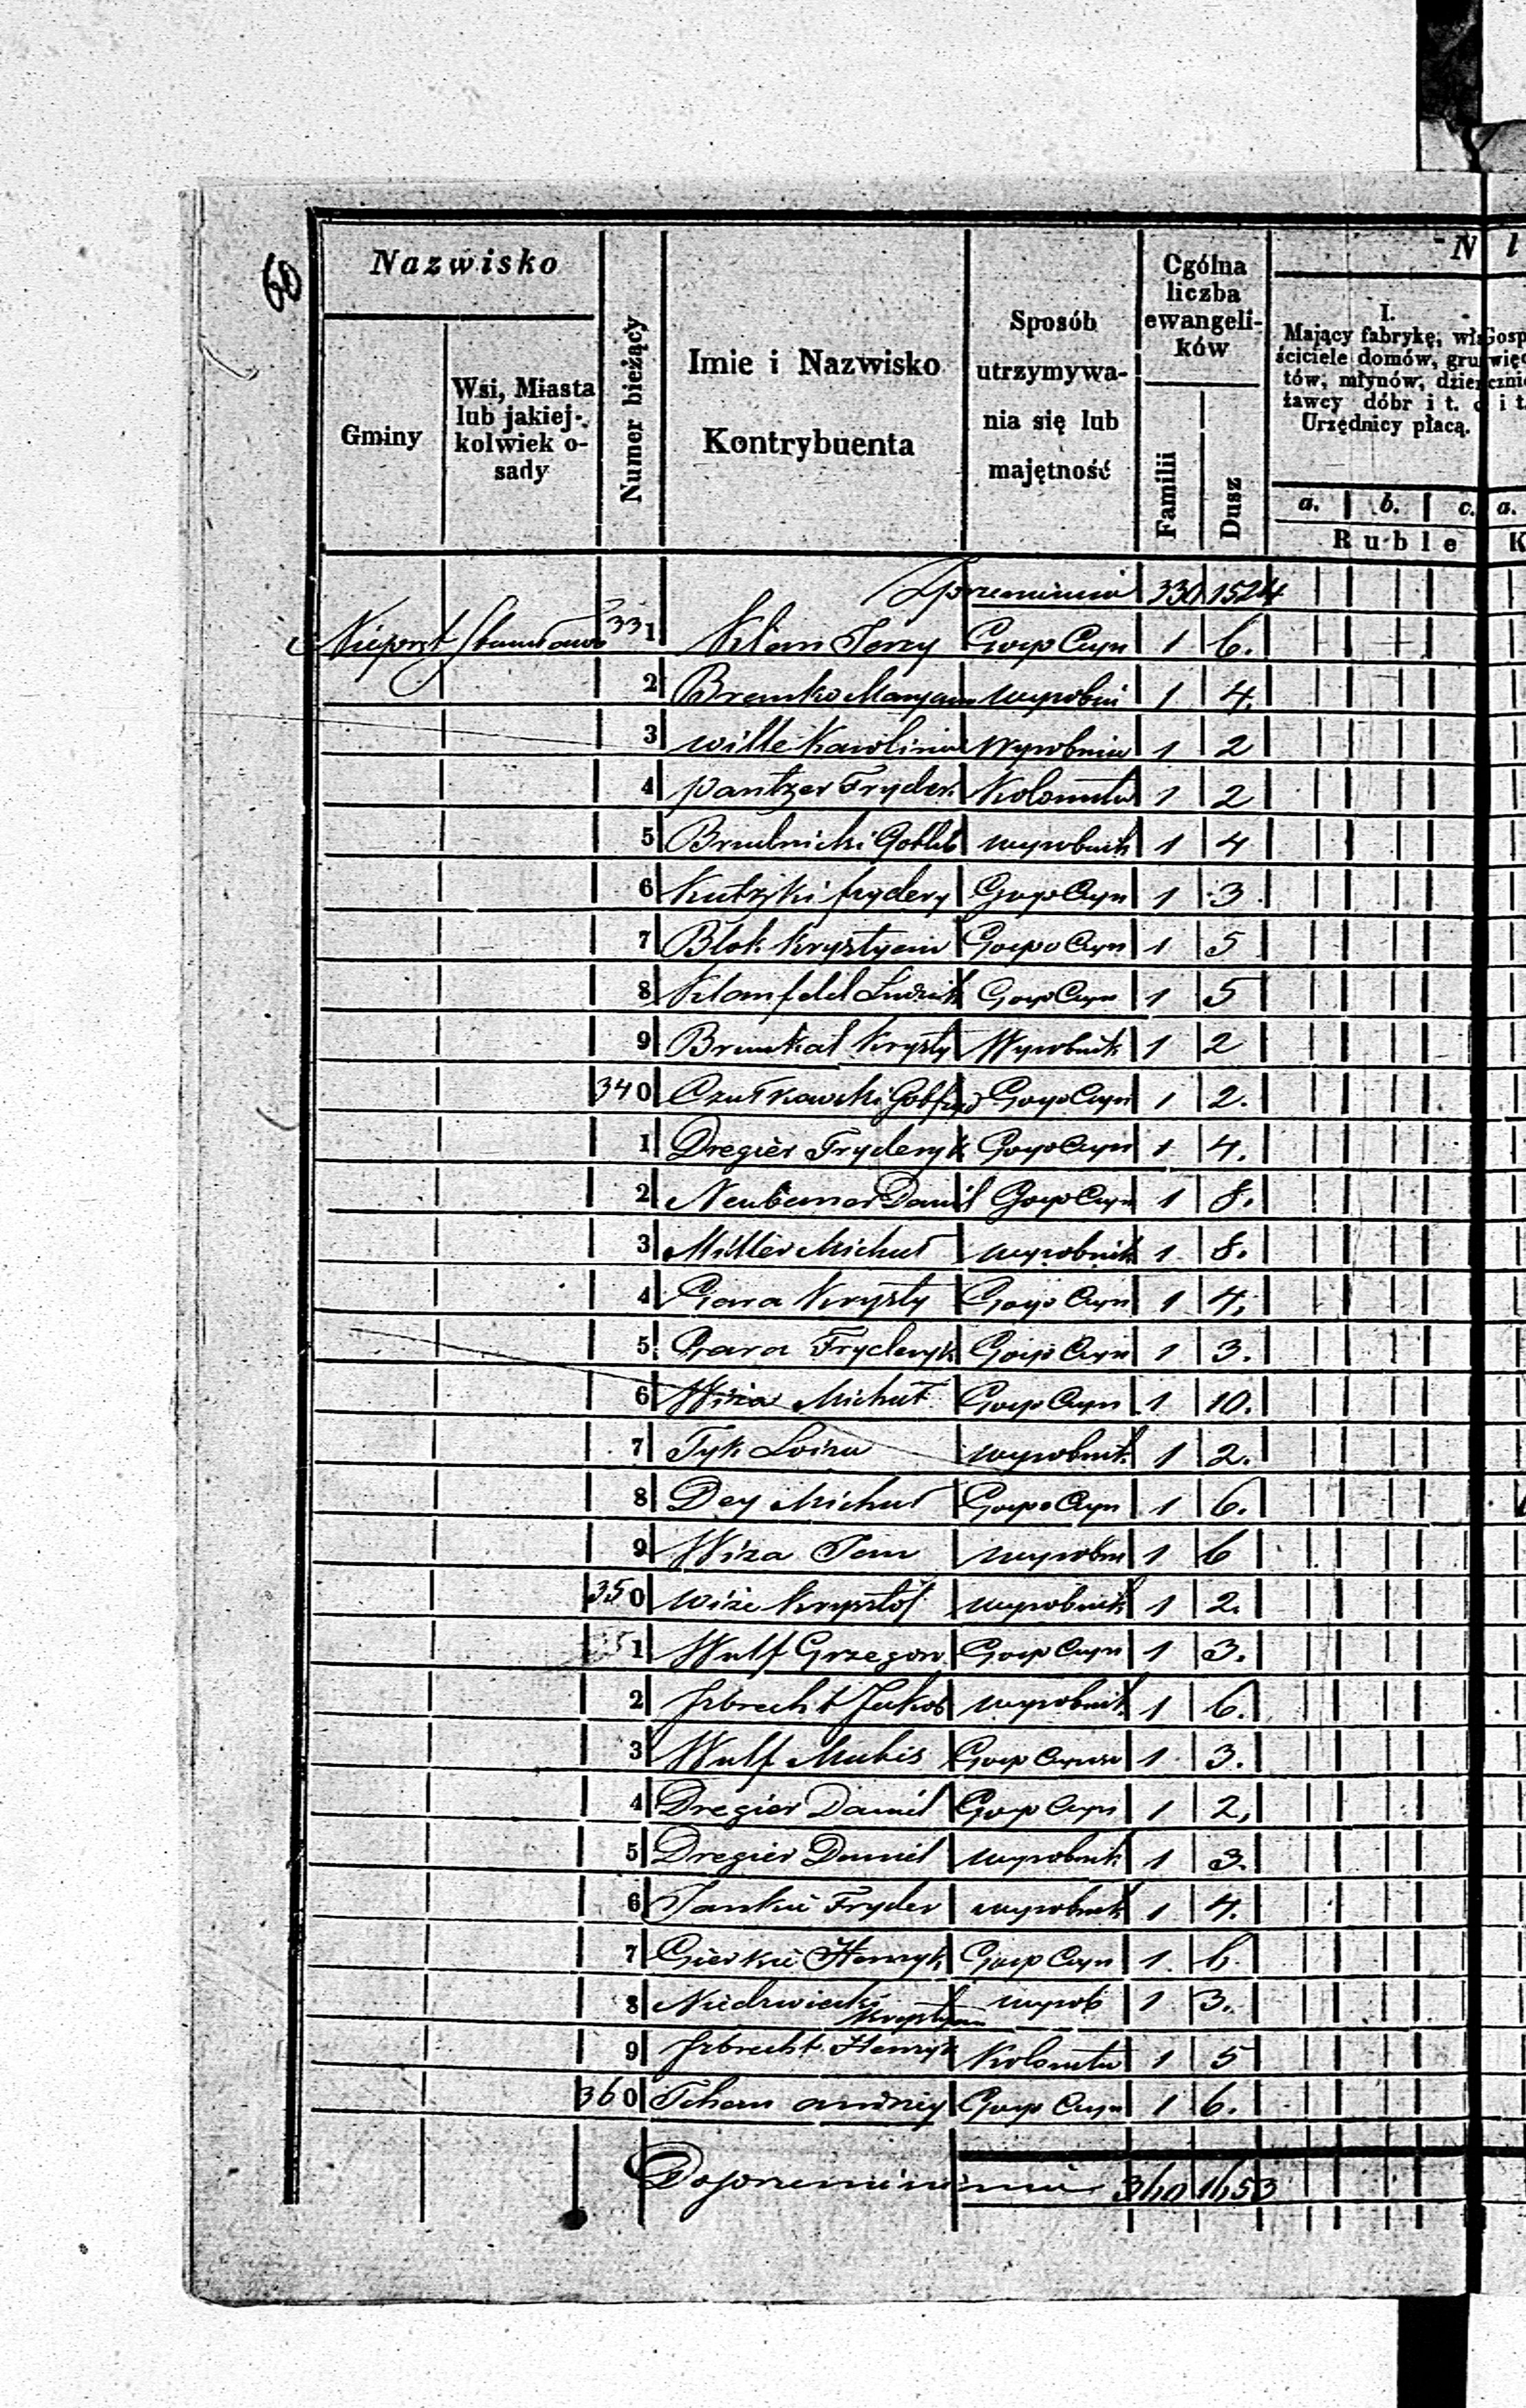 60
Nazwisko
Gminy
Wsi, Miasta
lub jakiej-
kolwiek o-
sady
Numer bieżący
Imie i Nazwisko
Kontrybuenta
Sposób
utrzymywa-
nia się lub
majętność
Ogólna
liczba
ewangeli-
ków
Familii
Dusz
N
I.
Mający fabrykę, wła
ściciele domów, grun
tów, młynów, dzier
żawcy dóbr i t. d
Urzędnicy płacą.
a. b. c. a.
Ruble K
Zprzeniesienia 330 1524
Nieporęt 331 Klan Jerzy Gosp Czyn 1 6.
2 Bremko Maryann wyrobni 1 4.
3 Wille Karolina Wyrobnica 1 2
4 Pantzer Fryder. Kolonista 1 2
5 Brudnicki Gottlib wyrobnik 1 4
6 Kutzki frydery Gosp Czyn 1 3
7 Blok Krystyan Gospo Czyn 1 5
8 Klanfeld Ludwik Gosp Czyn 1 5
9 Krysty Wyrobnik 1 2
340 Gotfryd Gosp Czyn 1 2.
1 Dregier Fryderyk Gosp Czyn 1 4.
2 Daniel Gosp Czyn 1 8.
3 Miller Michał wyrobnik 1 8.
4 Gara Krysty Gosp Czyn 1 4.
5 Gara Fryderyk Gosp Czyn 1 3.
6 Wiza Michał Gosp Czyn 1 10.
7 Tyk Loiza wyrobnik 1 2.
8 Dey Michał Gospo Czyn 1 6.
9 Wiza Jan wyrobn 1 6
350 Wize Krysztof wyrobnik 1 2.
1 Wulf Grzegorz Gosp Czyn 1 3.
2 Jzbrecht Jakob wyrobnik 1 6.
3 Wulf Gosp Czynsz 1 3.
4 Dregier Daniel Gosp Czyn 1 2.
5 Dregier Daniel wyrobnik 1 3.
6 Jankie Fryder wyrobnik 1 4.
7 Gierkie Henryk Gosp Czyn 1 6.
8 Niedzwiecki Krystyan wyrob 1 3.
9 Jzbrecht Henryk Kolonista 1 5
360 Andrzey Gosp Czyn 1 6.
Doprzeniesienia 360 1653